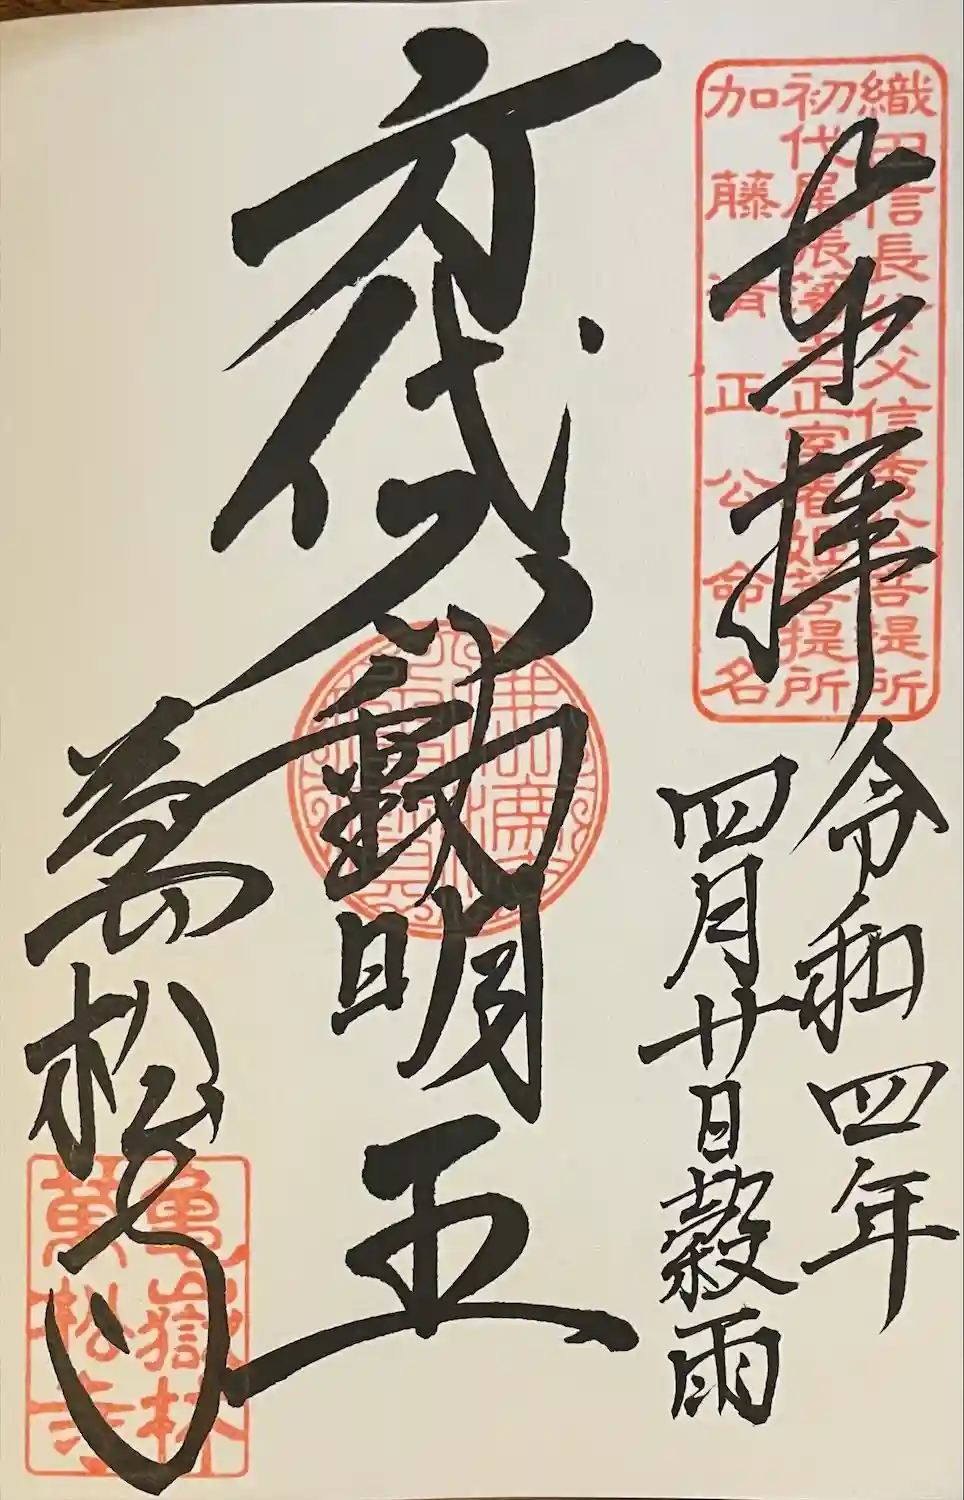 織田信長公父信秀公菩提所
初代尾張藩主正室春姫菩提所
加藤清正公命名
奉拝
令和四年
四月廿日穀雨
身代不動明王
萬松寺
亀嶽林
萬松寺